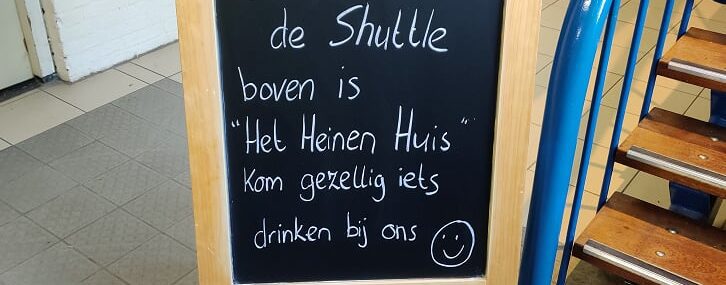 de Shuttle
boven is
"Het Heinen Huis"
Kom gezellig iets
drinken bij ons